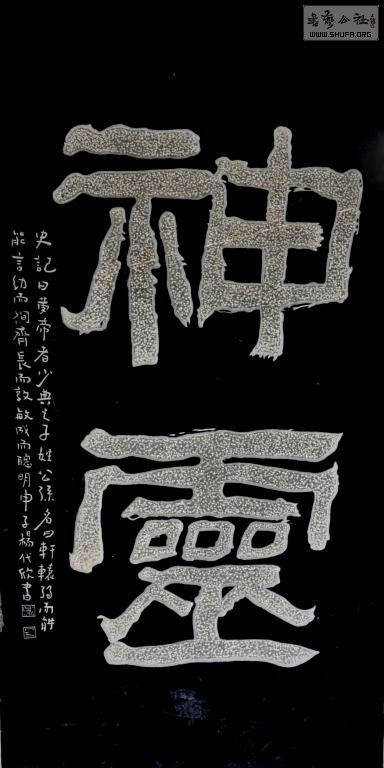 書藝公社
WWW.SHUFA.ORG
神靈
史記曰黄帝者少典之子姓公孫名曰軒轅弱而能
能言幼而徇齊長而敦敏成而聰明甲子楊代欣書